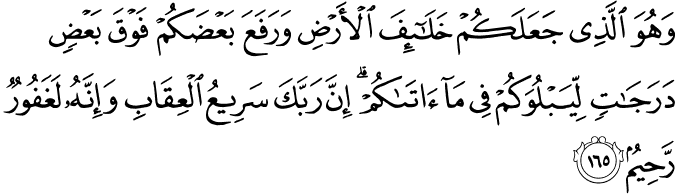 وَهُوَ ٱلَّذِى جَعَلَكُمْ خَلَٰٓئِفَ ٱلْأَرْضِ وَرَفَعَ بَعْضَكُمْ فَوْقَ بَعْضٍ
دَرَجَٰتٍ لِّيَبْلُوَكُمْ فِى مَآ ءَاتَىٰكُمْ ۗ إِنَّ رَبَّكَ سَرِيعُ ٱلْعِقَابِ وَإِنَّهُۥ لَغَفُورٌ
رَّحِيمٌۢ ١٦٥